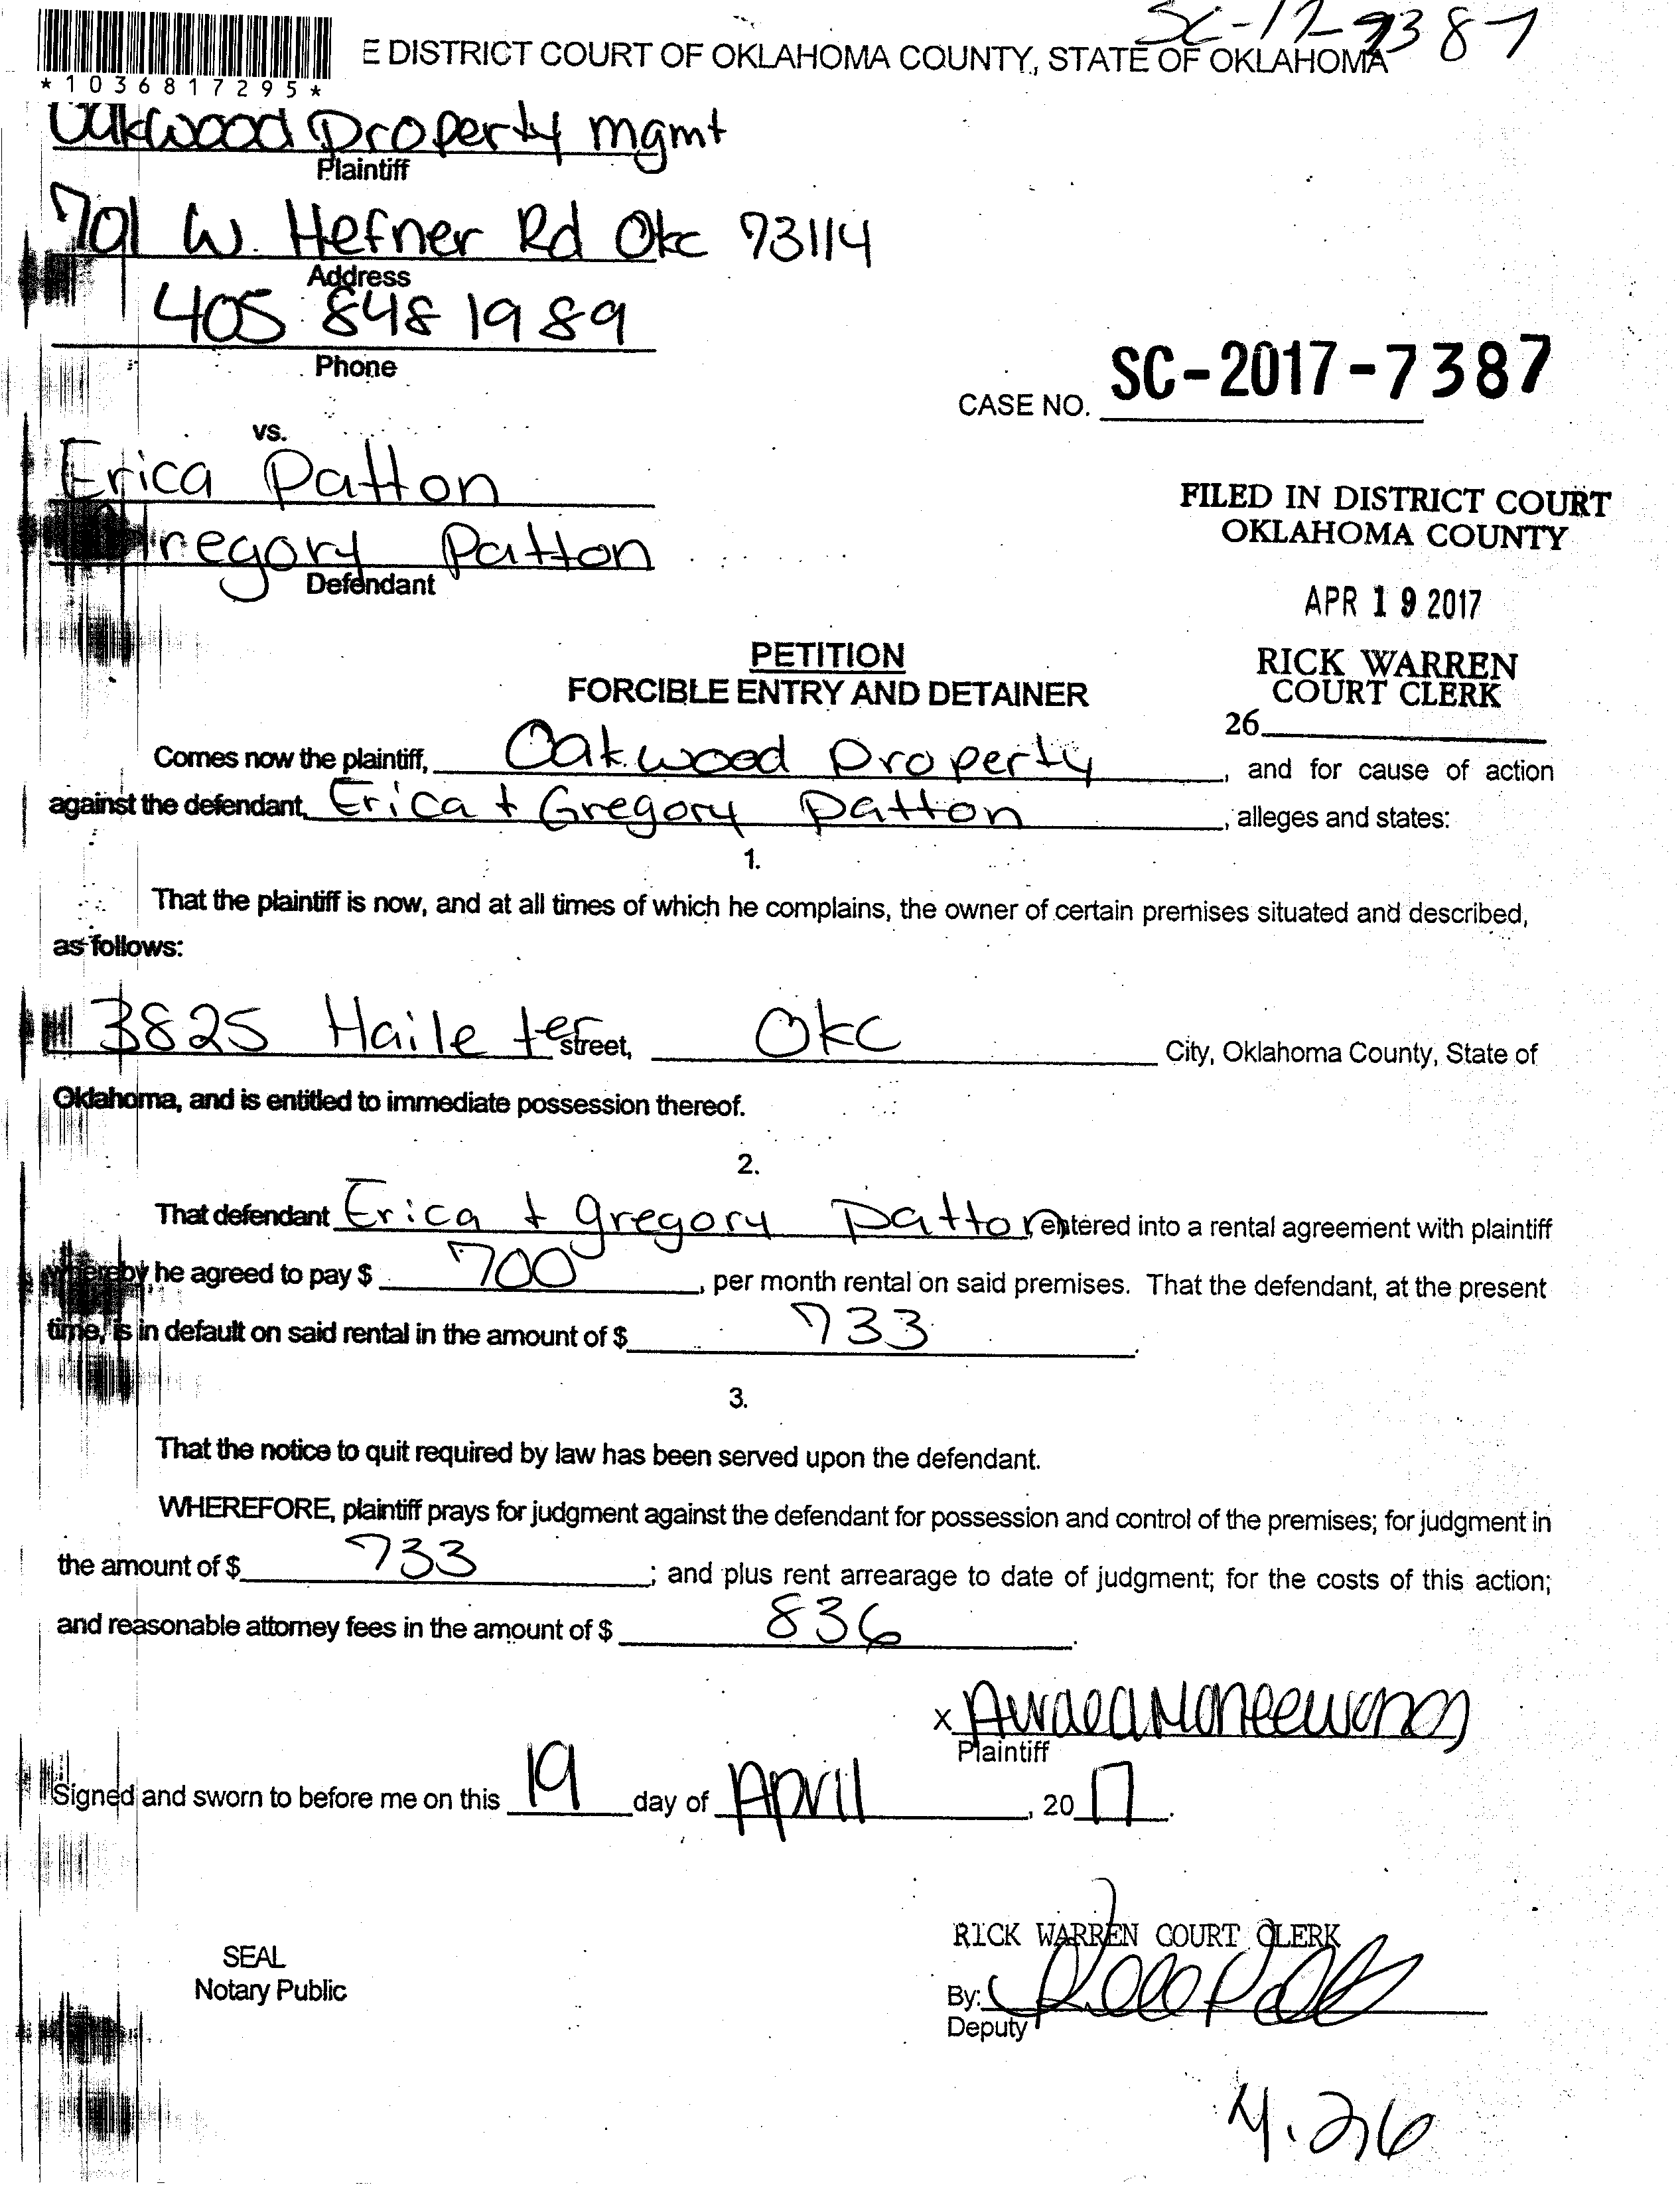 SC-17-7387
E DISTRICT COURT OF OKLAHOMA COUNTY, STATE OF OKLAHOMA
*1036817295*
Oakwood Property mgmt
Plaintiff
701 W. Hefner Rd Okc 73114
Address
405 848 1989
Phone
CASE NO. SC-2017-7387
vs.
Erica Patton
Gregory Patton
Defendant
FILED IN DISTRICT COURT
OKLAHOMA COUNTY
APR 19 2017
RICK WARREN
COURT CLERK
26
PETITION
FORCIBLE ENTRY AND DETAINER
Comes now the plaintiff, Oakwood Property, and for cause of action
against the defendant, Erica + Gregory Patton, alleges and states:
1.
That the plaintiff is now, and at all times of which he complains, the owner of certain premises situated and described,
as follows:
3825 Haile ter street, Okc City, Oklahoma County, State of
Oklahoma, and is entitled to immediate possession thereof.
2.
That defendant Erica + gregory Patton, entered into a rental agreement with plaintiff
whereby he agreed to pay $ 700, per month rental on said premises. That the defendant, at the present
time, is in default on said rental in the amount of $ 733.
3.
That the notice to quit required by law has been served upon the defendant.
WHEREFORE, plaintiff prays for judgment against the defendant for possession and control of the premises; for judgment in
the amount of $ 733; and plus rent arrearage to date of judgment; for the costs of this action;
and reasonable attorney fees in the amount of $ 836.
X
Plaintiff
Signed and sworn to before me on this 19 day of April, 2017.
RICK WARREN COURT CLERK
SEAL
Notary Public
By:
Deputy
4.26